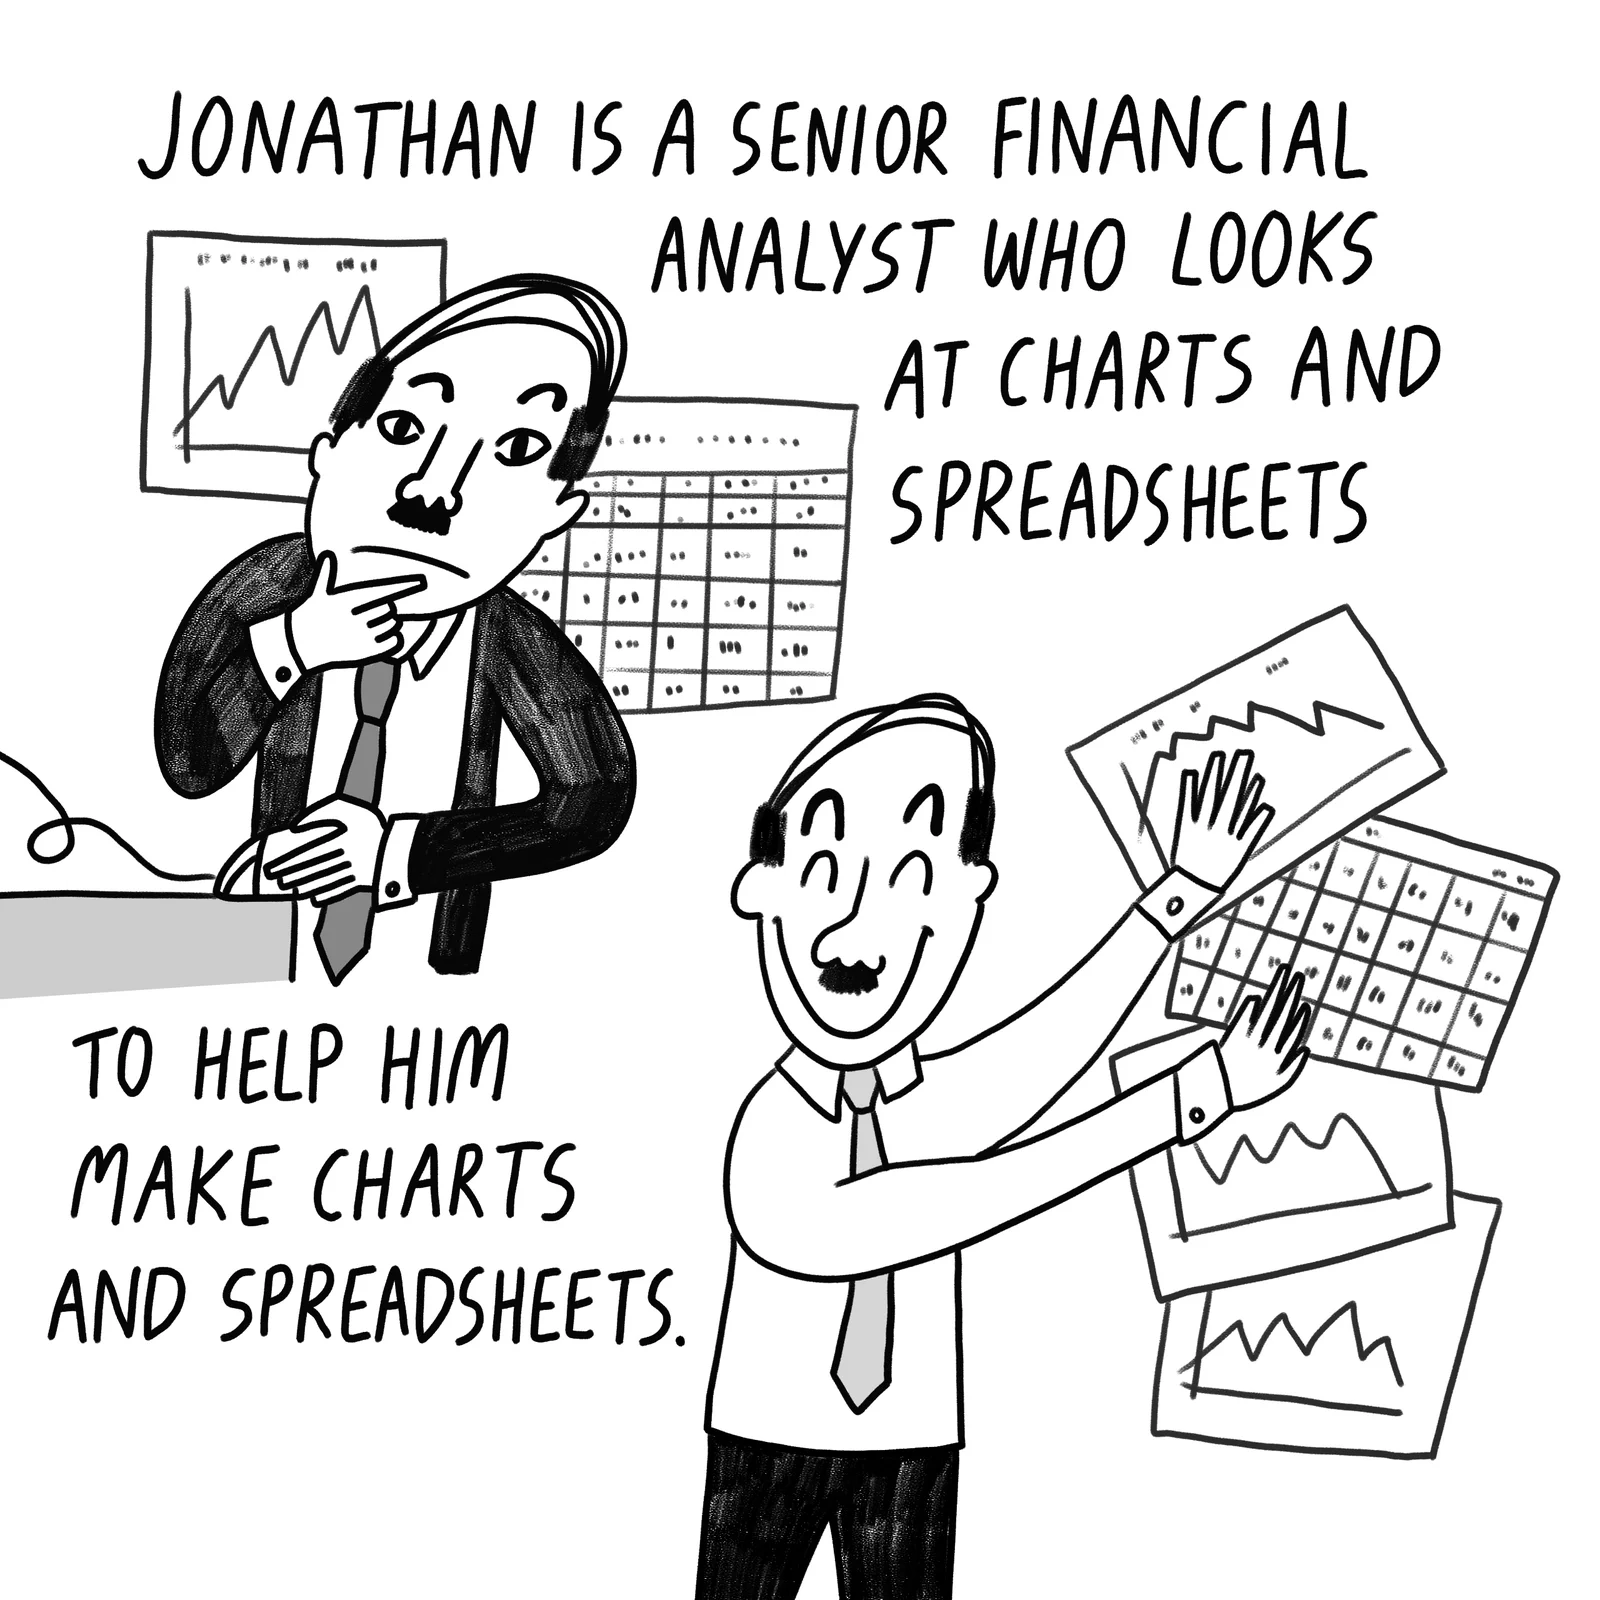 JONATHAN IS A SENIOR FINANCIAL
ANALYST WHO LOOKS
AT CHARTS AND
SPREADSHEETS
TO HELP HIM
MAKE CHARTS
AND SPREADSHEETS.